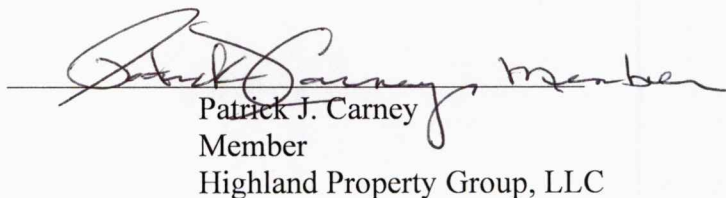 Patrick Carney, Member
Patrick J. Carney
Member
Highland Property Group, LLC